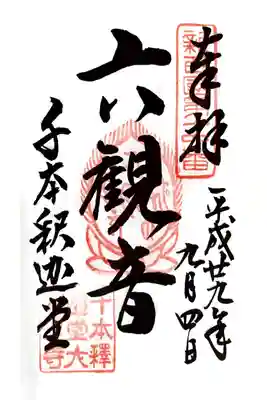 奉拝
平成廿九年
九月四日
六観音
千本釈迦堂
千本釋
迦堂大